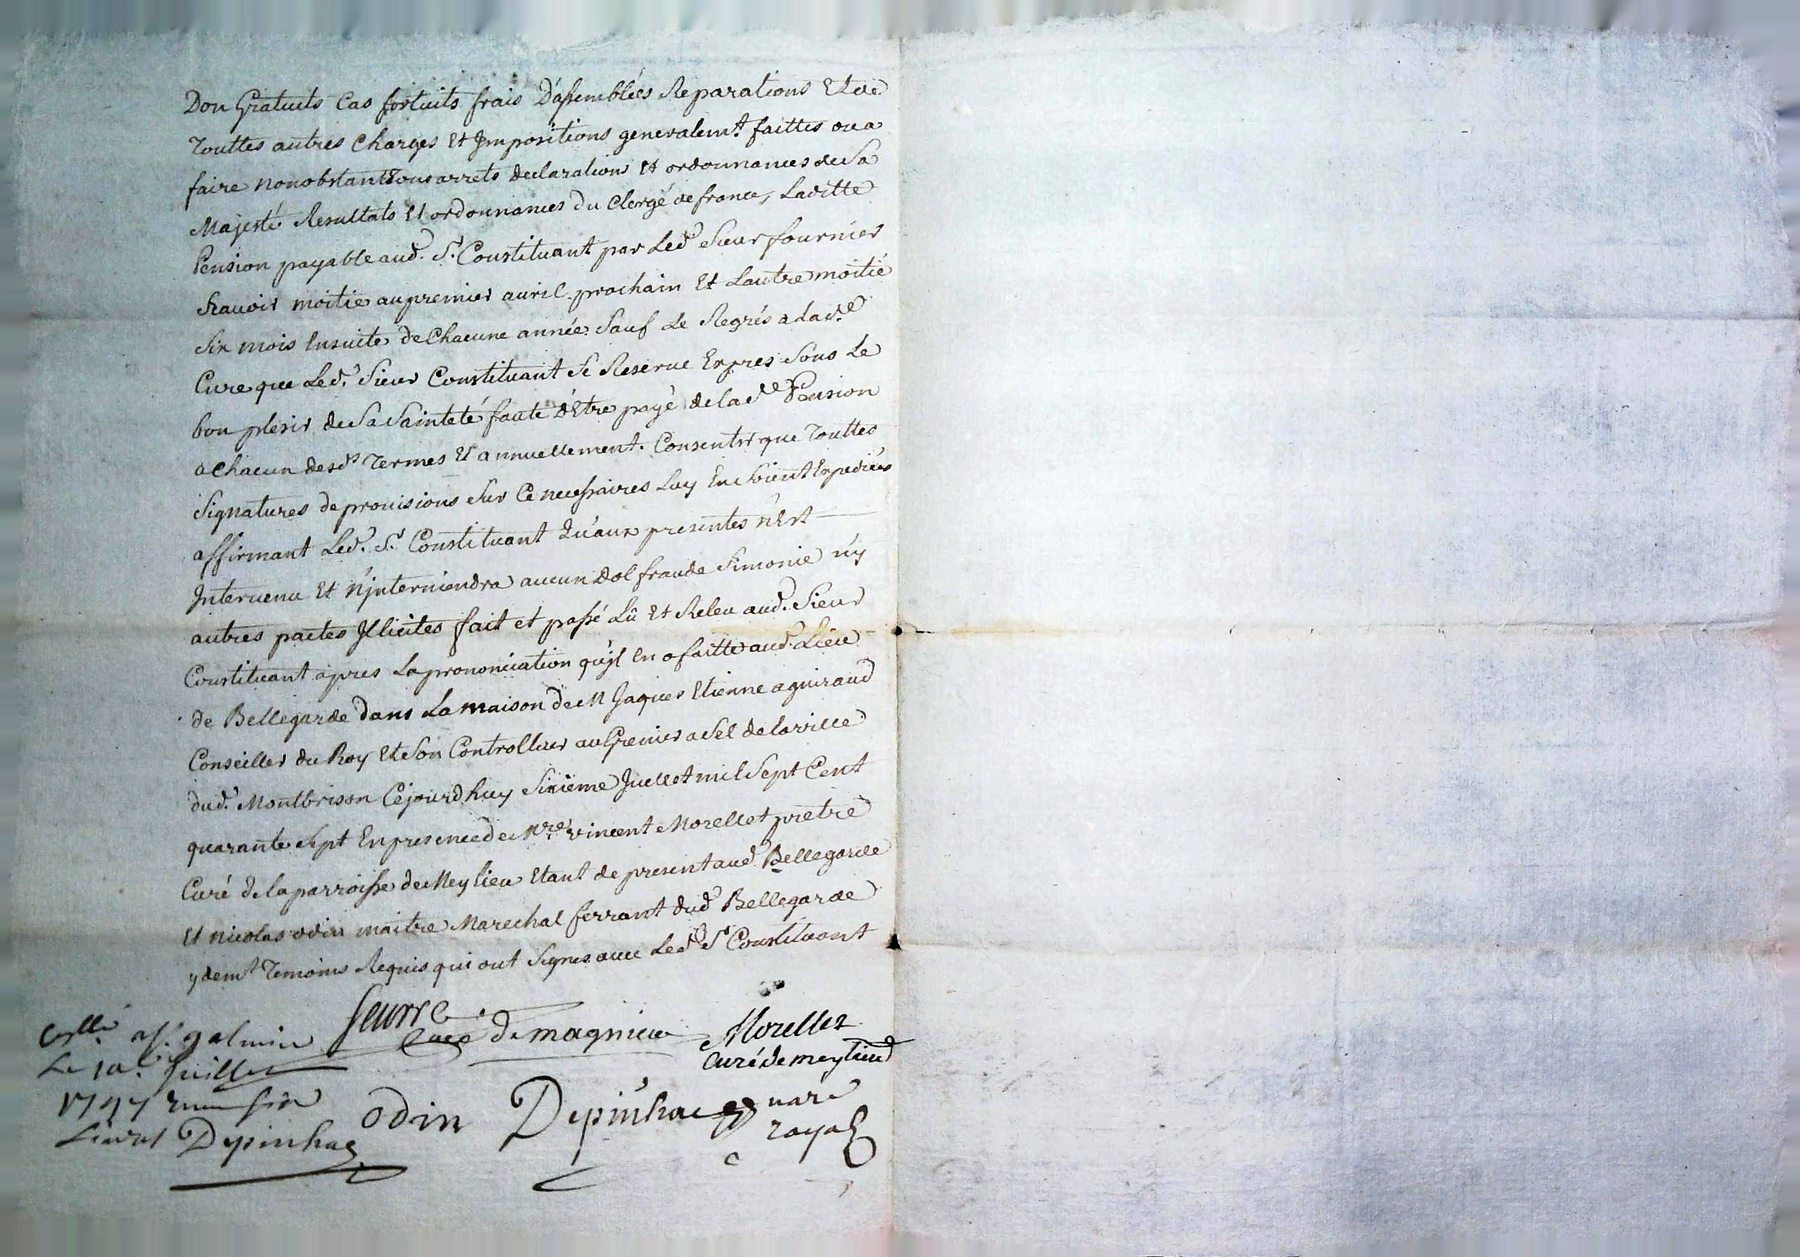 Don Gratuits Cas fortuits frais D'assemblées Reparations Et de
Touttes autres Charges Et Impositions generalemt. faittes ou a
faire nonobstant Tous arrets declarations Et ordonnances de Sa
Majesté Resultats Et ordonnances du Clergé de france, Laditte
Pension payable aud. Sr. Constituant par Led. Sieur fournier
Scauoir moitie au premier auril prochain Et Lautre moitié
Six mois Ensuite de Chacune année Sauf Le Regrés a lade.
Cure que Led. Sieur Constituant Se Reserue Expres Sous Le
bon plesir de Sa Sainteté faute d'Etre payé de lade. Pension
a Chacun desds. Termes Et annuellement. Consentir que Touttes
Signatures de prouisions Sur Ce necessaires Luy En Soient Expediées
affirmant Led. Sr. Constituant Qu'aux presentes n'Est
Interuenu Et N'jnteruiendra aucun dol fraude Simonie n'y
autres pactes Jllicites fait et passé Lû Et Releu aud. Sieur
Constituant apres La prononciation qu'jl En a faitte aud. Lieu
de Bellegarde dans La maison de M Jaques Etienne aguiraud
Conseiller du Roy Et Son Controlleur au Grenier a Sel de la ville
dud. Montbrison Cejourdhuy Sixième Juellet mil Sept Cent
quarante Sept En presence de Mre. vincent Morellet prètre
Curé de la parroisse de Meylieu Etant de present aud. Bellegarde
Et nicolas odin maitre Marechal ferrant dud. Bellegarde
y demt. Temoins Requis qui ont Signes auec Led. Sr. Constituant
Seurre
Curé de magnieu
Morellet
Curé de meylieud
Collé. a St. galmier
Le 10e. Juillet
1747
Depinhac
odin
Depinhac
nore
royal